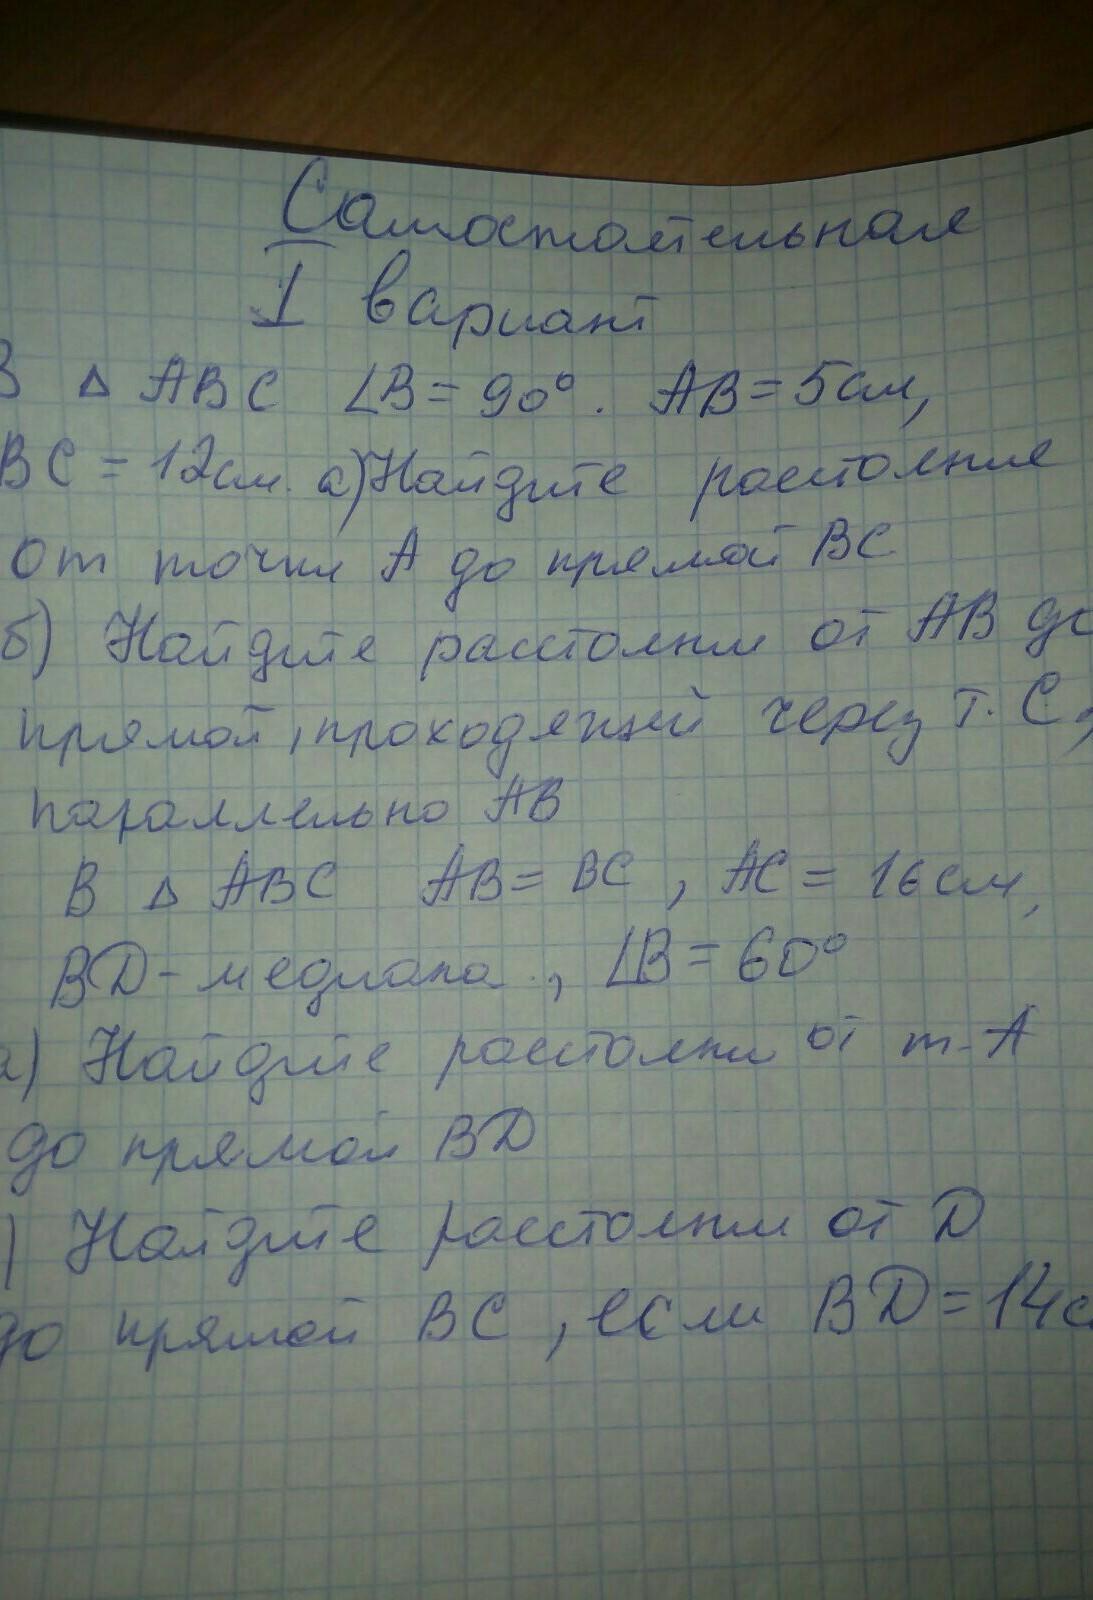 Самостоятельная
I вариант
В △ ABC ∠B = 90°. AB = 5см,
BC = 12см. а) Найдите расстояние
от точки A до прямой BC
б) Найдите расстояни от AB до
прямой, проходящей через т. C,
параллельно AB
В △ ABC AB = BC, AC = 16см,
BD - медиана, ∠B = 60°
а) Найдите расстояни от т. A
до прямой BD
) Найдите расстояни от D
до прямой BC, если BD = 14с